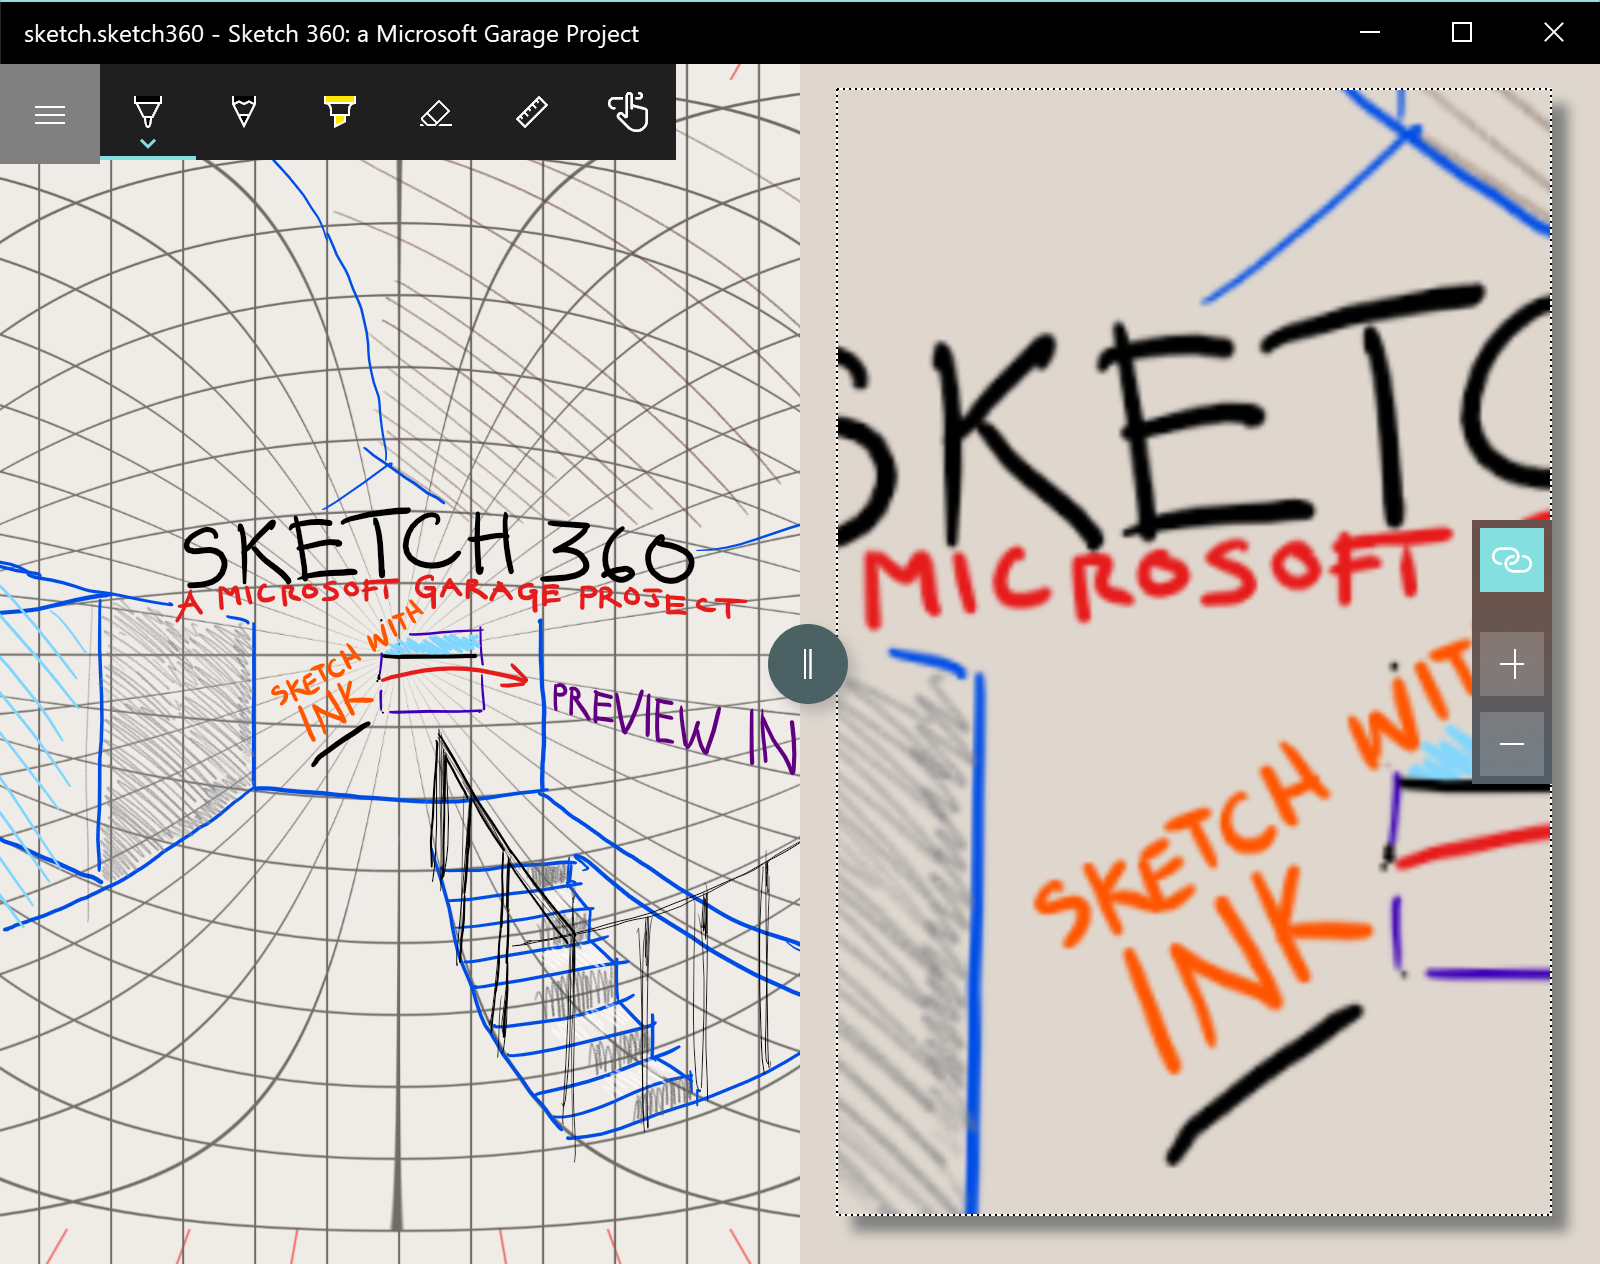 sketch.sketch360 - Sketch 360: a Microsoft Garage Project
SKETCH 360
A MICROSOFT GARAGE PROJECT
SKETCH WITH
INK
PREVIEW IN
SKETC
MICROSOFT
SKETCH WIT
INK